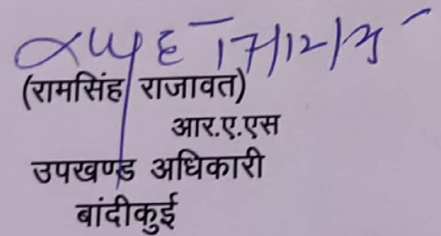 17/12/25
(रामसिंह राजावत)
आर.ए.एस
उपखण्ड अधिकारी
बांदीकुई